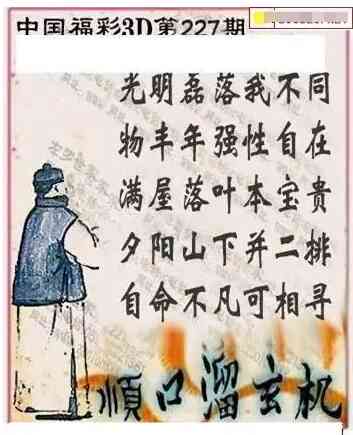 中国福彩3D第227期
光明磊落我不同
物丰年强性自在
满屋落叶本宝贵
夕阳山下并二排
自命不凡可相寻
顺口溜玄机